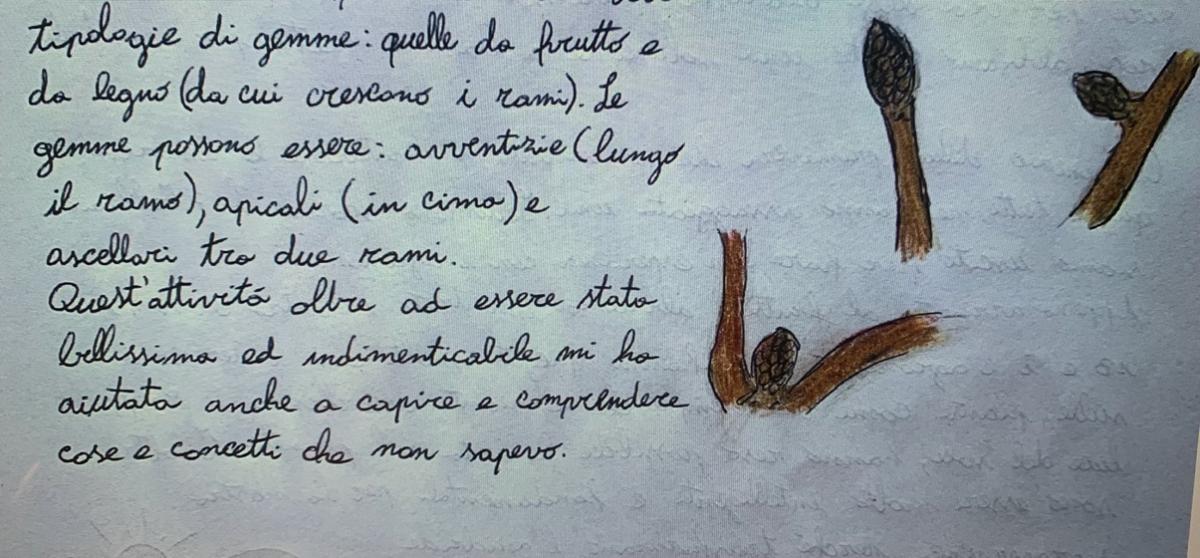 tipologie di gemme: quelle da frutto e
da legno (da cui crescono i rami). Le
gemme possono essere: avventizie (lungo
il ramo), apicali (in cima) e
ascellari tra due rami.
Quest'attività oltre ad essere stata
bellissima ed indimenticabile mi ha
aiutata anche a capire e comprendere
cose e concetti che non sapevo.